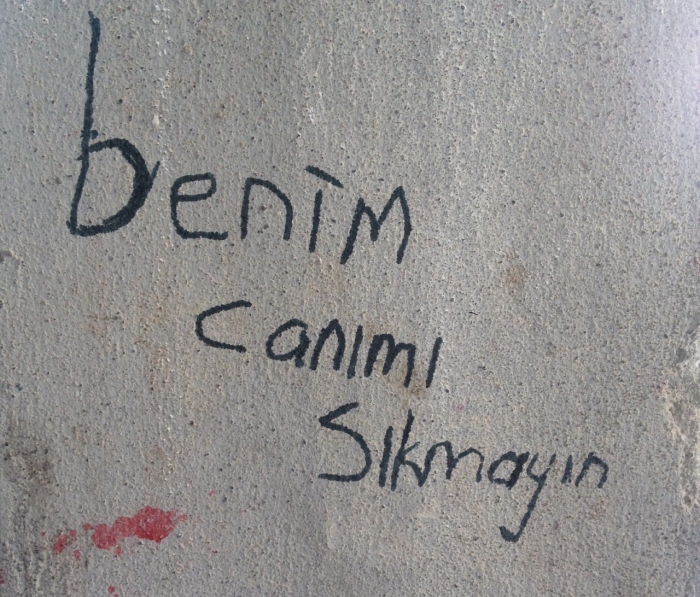 benim
canımı
Sıkmayın